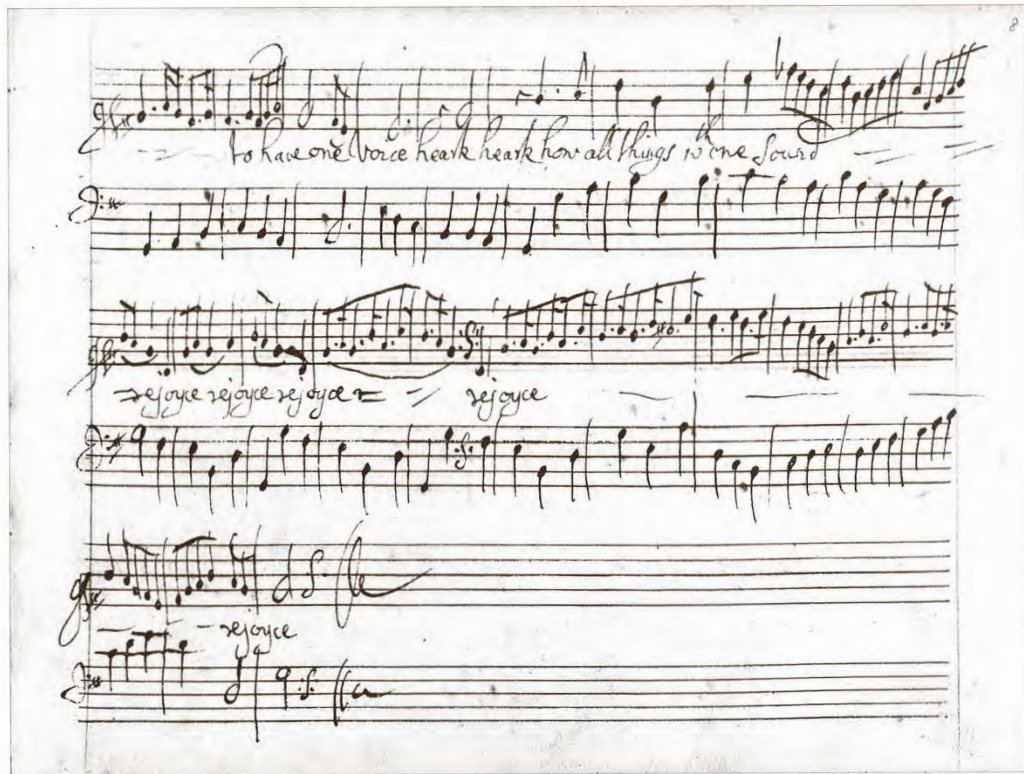 8
to have one Voice heark heark how all things in one Sound
rejoyce rejoyce rejoyce rejoyce
rejoyce